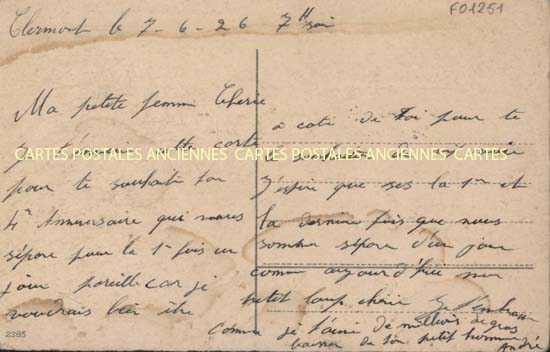 Clermont le 7-6-26 7h soir
FO1251
Ma petite femme Cherie
je t'envoie cette carte
pour te souhaiter ton
4e Anniversaire qui nous
sépare pour la 1e fois un
jour pareille car je
voudrais bien être
à coté de toi pour te
J'espère que ses la 1re et
la dernière fois que nous
somme sépare d'un jour
comme aujourd'hui mon
petit loup chérie Je t'embrasse
comme je t'aime de millions de gros
baiser de ton petit homme
André
CARTES POSTALES ANCIENNES CARTES POSTALES ANCIENNES CARTES
2285